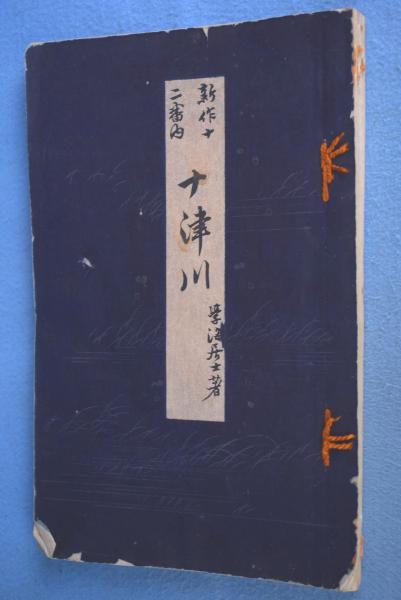 新作十
二番内
十津川
學海居士著